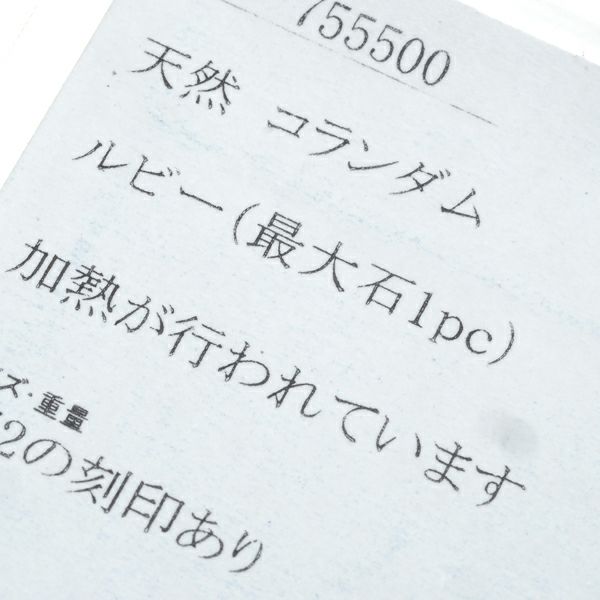 755500
天然 コランダム
ルビー(最大石1pc)
加熱が行われています
ズ・重量
2の刻印あり